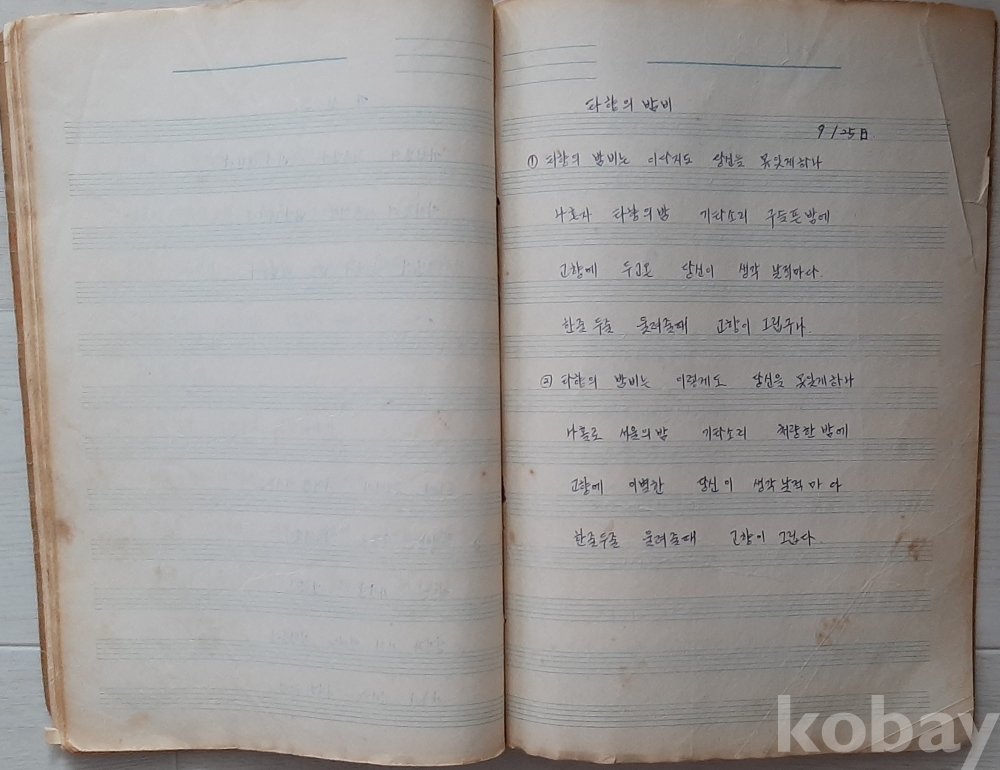 타향의 밤비
9/25日
① 타향의 밤비는 이다지도 당신을 못잊게하나
나혼자 타향의밤 기타소리 구슬픈밤에
고향에 두고온 당신이 생각 날적마다
한줄두줄 울려줄때 고향이 그립구나
② 타향의 밤비는 이렇게도 당신을 못잊게하나
나홀로 서울의밤 기타소리 처량한밤에
고향에 이별한 당신이 생각날적마다
한줄두줄 울려줄때 고향이 그립다
kobay